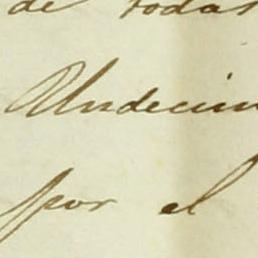 de todas
Undecim
por el